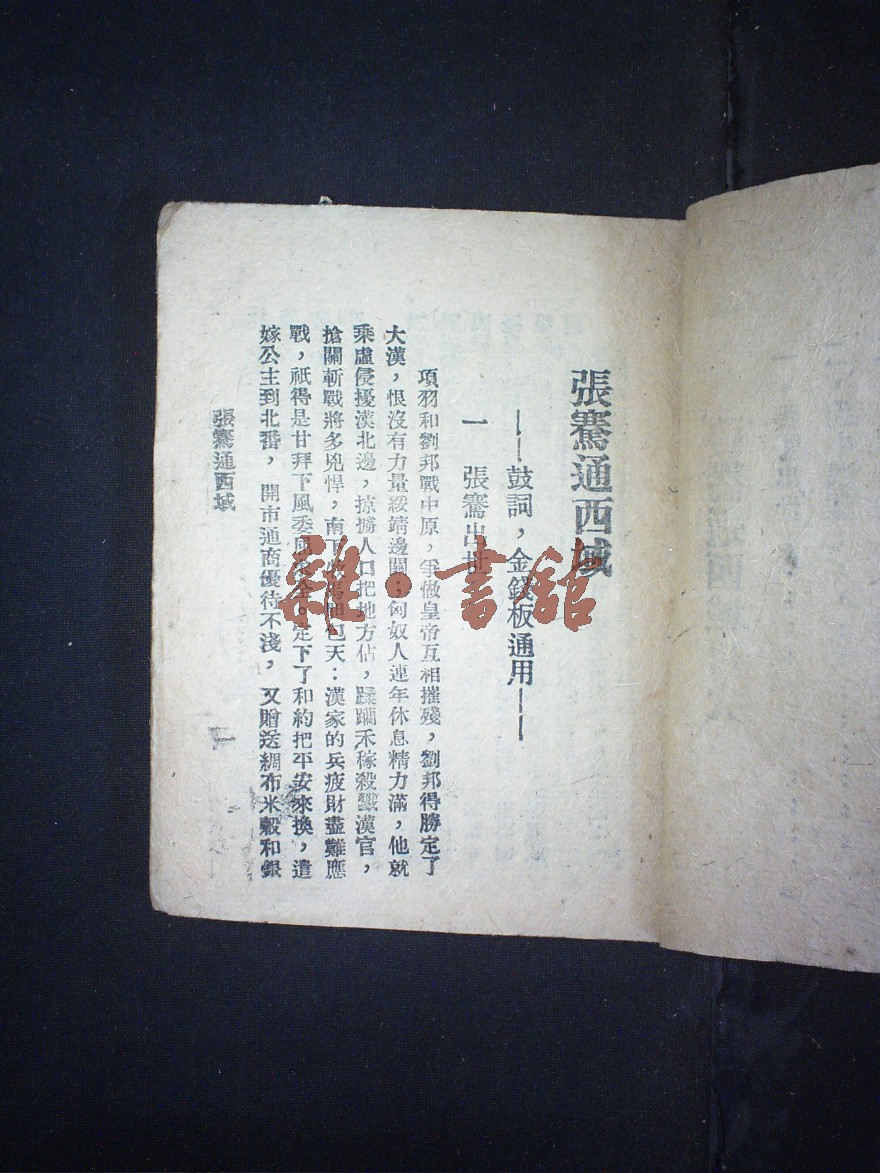 張騫通西域
——鼓詞，金錢板通用——
一 張騫出世
項羽和劉邦戰中原，爭做皇帝互相摧殘，劉邦得勝定了
大漢，恨沒有力量綏靖邊關；匈奴人連年休息精力滿，他就
乘虛侵擾漢北邊，掠擄人口把地方佔，蹂躪禾稼殺戮漢官，
搶關斬戰將多兇悍，南下牧馬膽包天：漢家的兵疲財盡難應
戰，祇得是甘拜下風委屈求全。定下了和約把平安來換，遣
嫁公主到北番，開市通商優待不淺，又贈送綢布米穀和銀
張騫通西域
一
雜·書館